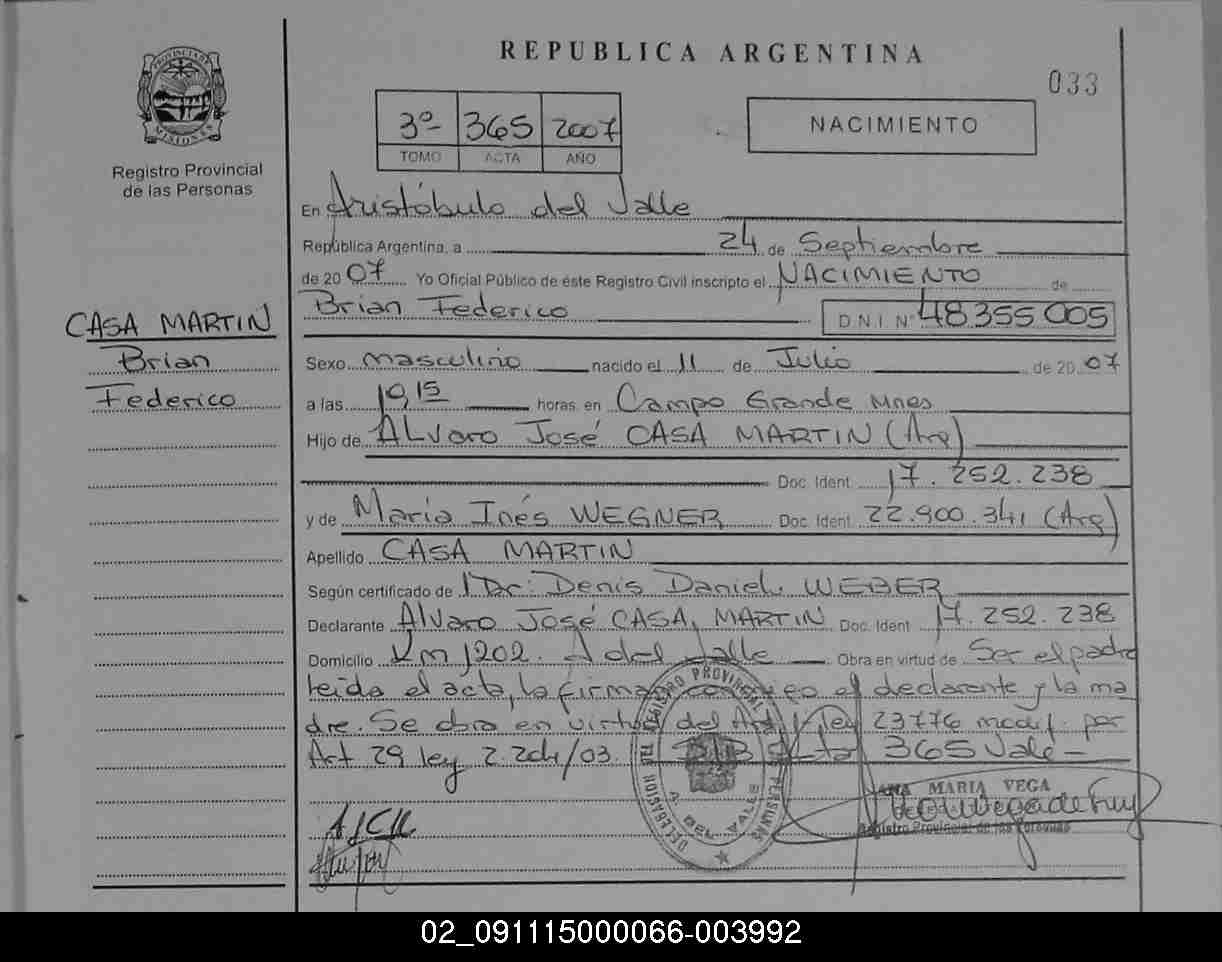 REPUBLICA ARGENTINA
033
PROVINCIA DE
MISIONES
Registro Provincial
de las Personas
3º 365 2007
TOMO ACTA AÑO
NACIMIENTO
En Aristóbulo del Valle
República Argentina, a 24 de Septiembre
de 2007 Yo Oficial Público de éste Registro Civil inscripto el NACIMIENTO de
Brian Federico D.N.I. Nº 48355005
CASA MARTIN
Brian
Federico
Sexo masculino nacido el 11 de Julio de 2007
a las 19,15 horas. en Campo Grande Mnes
Hijo de ALvaro José CASA MARTIN (Arg)
Doc. Ident. 17.252.238
y de María Inés WEGNER Doc. Ident. 22.900.341 (Arg)
Apellido CASA MARTIN
Según certificado de Dr: Denis Daniel WEBER
Declarante Alvaro José CASA MARTIN Doc. Ident. 17.252.238
Domicilio Km 1202. A del Valle Obra en virtud de Ser el padre
leída el acta, la firma conmigo el declarante y la ma
dre. Se obra en virtud del Art ley 23776 modif. por
Art 29 ley 2.204/03. Acta 365 Vale-
DELEGACION DEL REGISTRO PROVINCIAL DE LAS PERSONAS
A. DEL VALLE
ANA MARIA VEGA
Registro Provincial de las Personas
AJCM
02_091115000066-003992